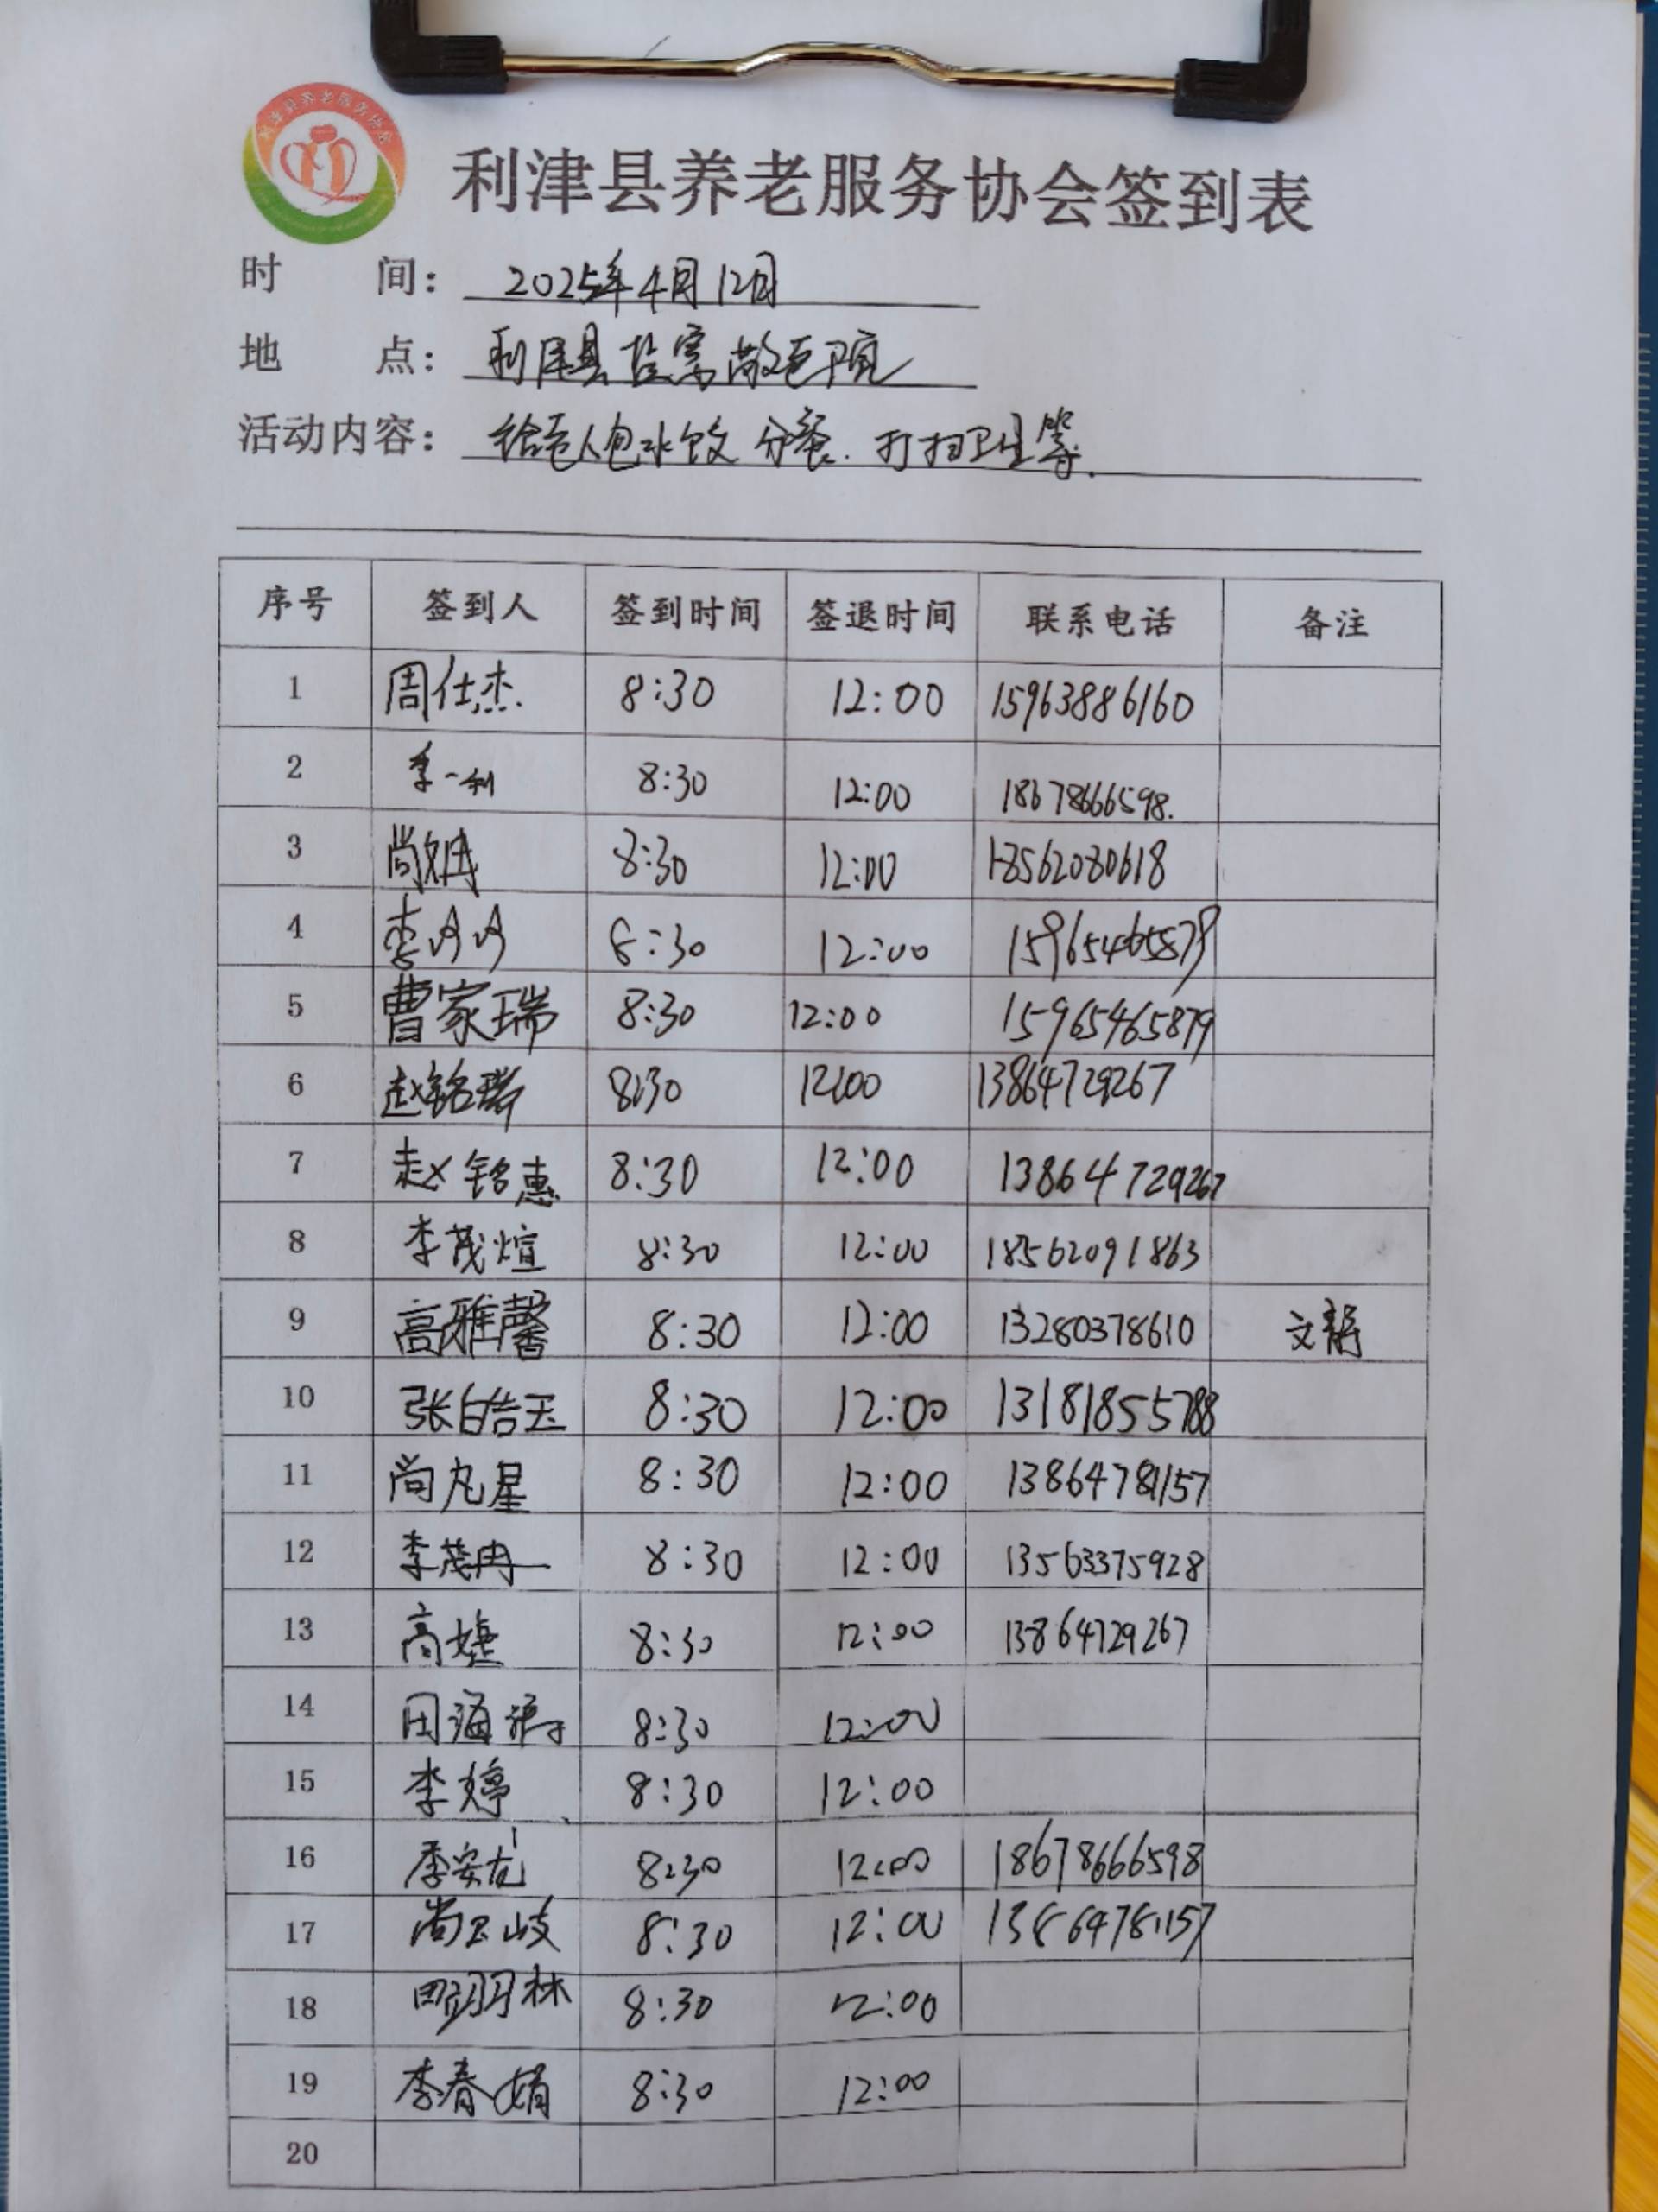 利津县养老服务协会
利津县养老服务协会签到表
时 间： 2025年4月12日
地 点： 利津县盐窝敬老院
活动内容： 给老人包水饺 分餐、打扫卫生等.
序号 签到人 签到时间 签退时间 联系电话 备注
1 周仕杰. 8:30 12:00 15963886160
2 季一利 8:30 12:00 18678666598.
3 尚姗 8:30 12:00 18562080618
4 李丹丹 8:30 12:00 15965465879
5 曹家瑞 8:30 12:00 15965465879
6 赵铭瑞 8:30 12:00 13864729267
7 赵铭惠 8:30 12:00 13864729267
8 李茂煊 8:30 12:00 18562091863
9 高雅馨 8:30 12:00 13280378610 文静
10 张皓玉 8:30 12:00 13181855788
11 尚凡星 8:30 12:00 13864781157
12 李茂冉 8:30 12:00 13563375928
13 高婕 8:30 12:00 13864729267
14 田海 8:30 12:00
15 李婷 8:30 12:00
16 季安龙 8:30 12:00 18678666598
17 尚玉岐 8:30 12:00 13864781157
18 8:30 12:00
19 李春娟 8:30 12:00
20